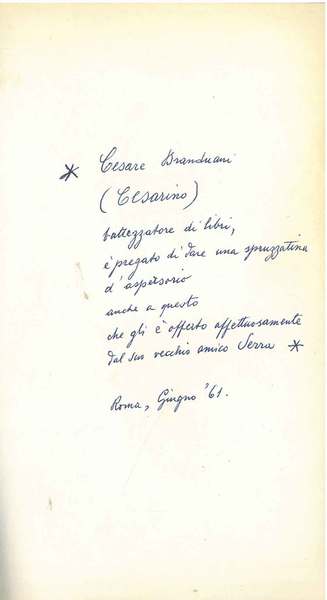 * Cesare Branduani
(Cesarino)
battezzatore di libri,
è pregato di dare una spruzzatina
d'aspersorio
anche a questo
che gli è offerto affettuosamente
dal suo vecchio amico Serra *
Roma, Giugno '61.